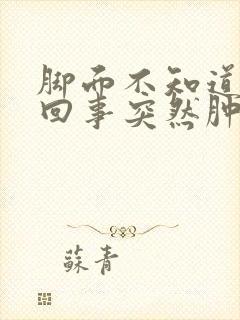 脚面不知道
回事突然肿
蘇青